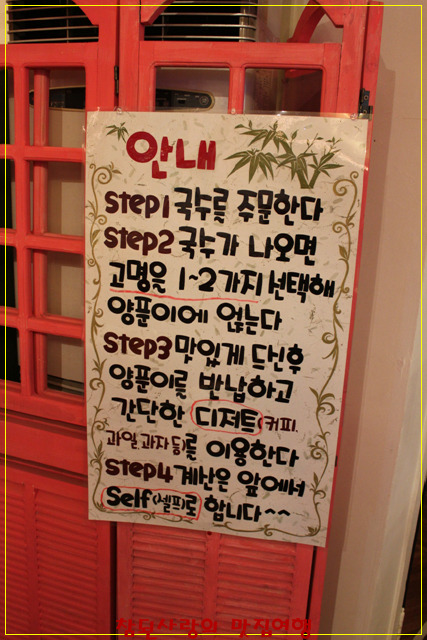 안내
step1 국수를 주문한다
step2 국수가 나오면
고명을 1~2가지 선택해
양푼이에 얹는다
step3 맛있게 드신후
양푼이를 반납하고
간단한 디저트(커피,
과일,과자 등)를 이용한다
step4 계산은 앞에서
Self(셀프)로 합니다~~
맛집여행